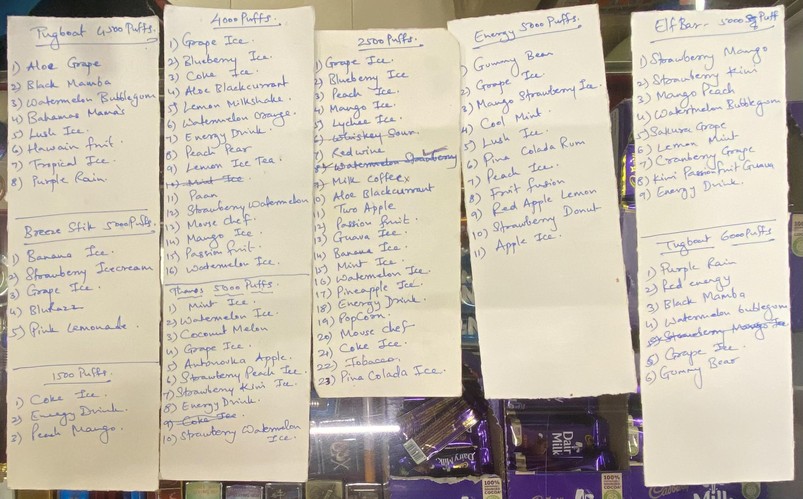 Tugboat 4500 Puffs.
1) Aloe Grape
2) Black Mamba
3) Watermelon Bubblegum
4) Bahamas Mama's
5) Lush Ice.
6) Hawain fruit.
7) Tropical Ice.
8) Purple Rain.
Breeze Stik 5000 Puffs.
1) Banana Ice.
2) Strawberry Icecream
3) Grape Ice.
4) BluRazz
5) Pink Lemonade.
1500 Puffs.
1) Coke Ice.
2) Energy Drink.
3) Peach Mango.
4000 Puffs
1) Grape Ice.
2) Blueberry Ice.
3) Coke Ice.
4) Aloe Blackcurrant
5) Lemon Milkshake.
6) Watermelon Orange.
7) Energy Drink.
8) Peach Pear
9) Lemon Ice Tea.
10) Mint Ice.
11) Paan
12) Strawberry Watermelon
13) Mouse Chef.
14) Mango Ice
15) Passion fruit.
16) Watermelon Ice.
Thanos 5000 Puffs.
1) Mint Ice.
2) Watermelon Ice.
3) Coconut Melon
4) Grape Ice.
5) Antonovka Apple.
6) Strawberry Peach Ice.
7) Strawberry Kiwi Ice.
8) Energy Drink.
9) Coke Ice.
10) Strawberry Watermelon
Ice.
2500 Puffs.
1) Grape Ice.
2) Blueberry Ice
3) Peach Ice.
4) Mango Ice.
5) Lychee Ice.
6) Whiskey Sour.
7) Redwine.
8) Watermelon Strawberry
9) Milk Coffee
10) Aloe Blackcurrant
11) Two Apple
12) Passion fruit.
13) Guava Ice.
14) Banana Ice.
15) Mint Ice.
16) Watermelon Ice.
17) Pineapple Ice.
18) Energy Drink.
19) PopCorn.
20) Mouse chef
21) Coke Ice.
22) Tobacco.
23) Pina Colada Ice.
Energy 5000 Puffs.
1) Gummy Bear
2) Grape Ice.
3) Mango Strawberry Ice.
4) Cool Mint.
5) Lush Ice.
6) Pina Colada Rum
7) Peach Ice.
8) Fruit fusion
9) Red Apple Lemon
10) Strawberry Donut
11) Apple Ice.
Elf Bar. 5000 Puff
1) Strawberry Mango
2) Strawberry Kiwi
3) Mango Peach
4) Watermelon Bubblegum
5) Sakura Grape
6) Lemon Mint
7) Cranberry Grape
8) Kiwi Passionfruit Guava
9) Energy Drink.
Tugboat 6000 Puffs
1) Purple Rain
2) Red energy
3) Black Mamba
4) Watermelon bubblegum
5) Strawberry Mango Ice
5) Grape Ice.
6) Gummy Bear
Dairy Milk
Dairy
Milk
100%
100%